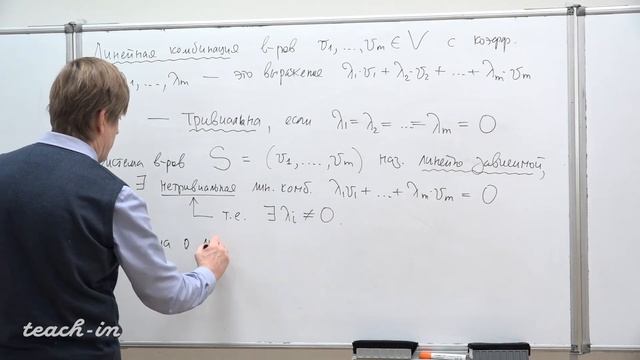 Линейная комбинация в-ров v₁, ..., vₘ ∈ V с коэфф.
₁, ..., λₘ — это выражение λ₁·v₁ + λ₂·v₂ + ... + λₘ·vₘ
— Тривиальна, если λ₁ = λ₂ = ... = λₘ = 0
истема в-ров S = (v₁, ..., vₘ) наз. линейно зависимой,
∃ нетривиальная лин. комб. λ₁v₁ + ... + λₘ·vₘ = 0
т.е. ∃ λᵢ ≠ 0.
а о
teach-in